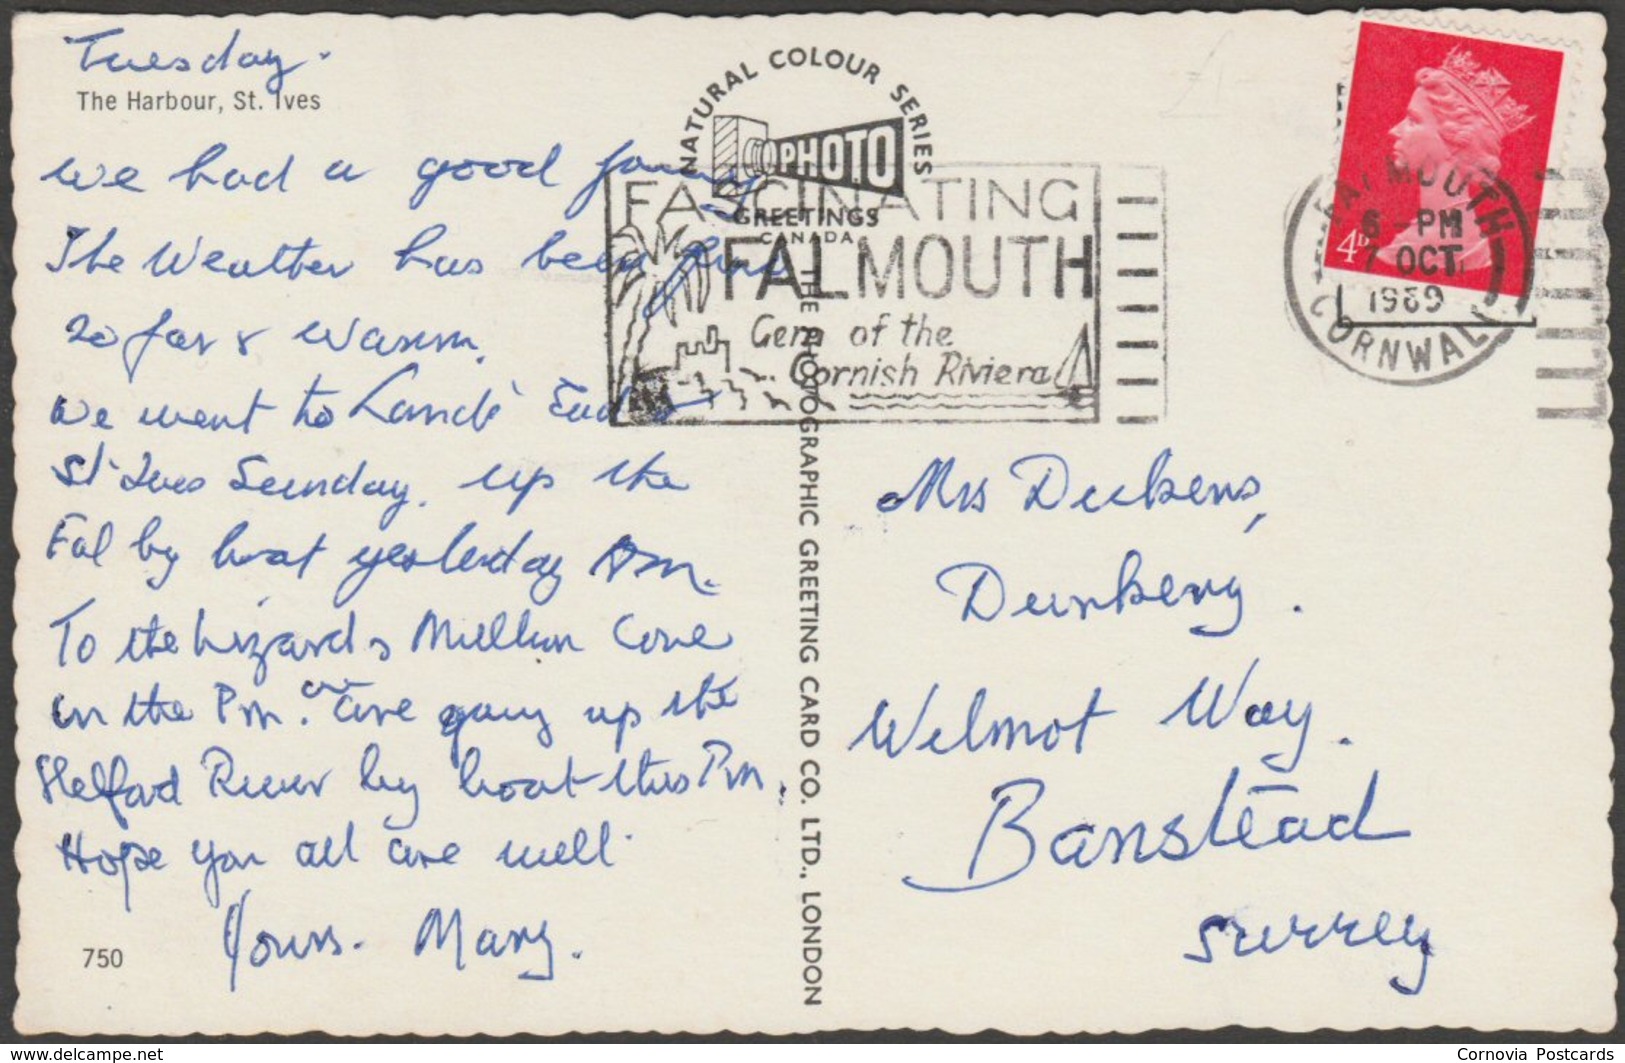 Tuesday.
The Harbour, St. Ives
We had a good journey
The Weather has been fine
so far & warm.
We went to Lands' End &
St Ives Sunday. up the
Fal by boat yesterday Am.
To the Lizard & Mullion Cove
in the Pm. are
going up the
Helford River by boat this Pm.
Hope you all are well.
Yours. Mary.
750
NATURAL COLOUR SERIES
PHOTO
GREETINGS
CANADA
THE PHOTOGRAPHIC GREETING CARD CO. LTD., LONDON
FASCINATING
FALMOUTH
Gem of the
Cornish Riviera
4D
FALMOUTH
6 - PM
7 OCT
1969
CORNWALL
£1-
Mrs Dickens,
Dunkery.
Wilmot Way.
Banstead
Surrey
www.delcampe.net
Cornovia Postcards